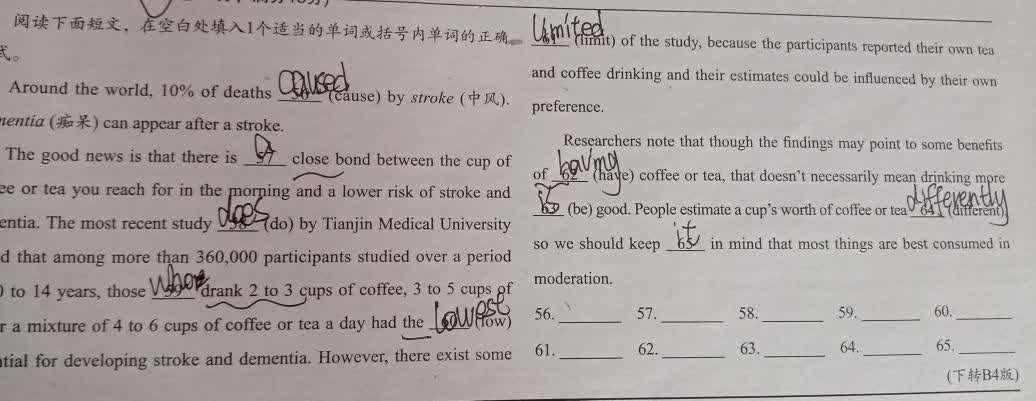 阅读下面短文，在空白处填入1个适当的单词或括号内单词的正确
式。
Around the world, 10% of deaths 56 caused (cause) by stroke (中风).
mentia (痴呆) can appear after a stroke.
The good news is that there is 57 a close bond between the cup of
ee or tea you reach for in the morning and a lower risk of stroke and
entia. The most recent study 58 does (do) by Tianjin Medical University
d that among more than 360,000 participants studied over a period
0 to 14 years, those 59 drank 2 to 3 cups of coffee, 3 to 5 cups of
r a mixture of 4 to 6 cups of coffee or tea a day had the 60 lowest (low)
ntial for developing stroke and dementia. However, there exist some
61 limited (limit) of the study, because the participants reported their own tea
and coffee drinking and their estimates could be influenced by their own
preference.
Researchers note that though the findings may point to some benefits
of 62 having (have) coffee or tea, that doesn't necessarily mean drinking more
63 is (be) good. People estimate a cup's worth of coffee or tea 64 differently (different),
so we should keep 65 it in mind that most things are best consumed in
moderation.
56. 57. 58. 59. 60.
61. 62. 63. 64. 65.
(下转B4版)